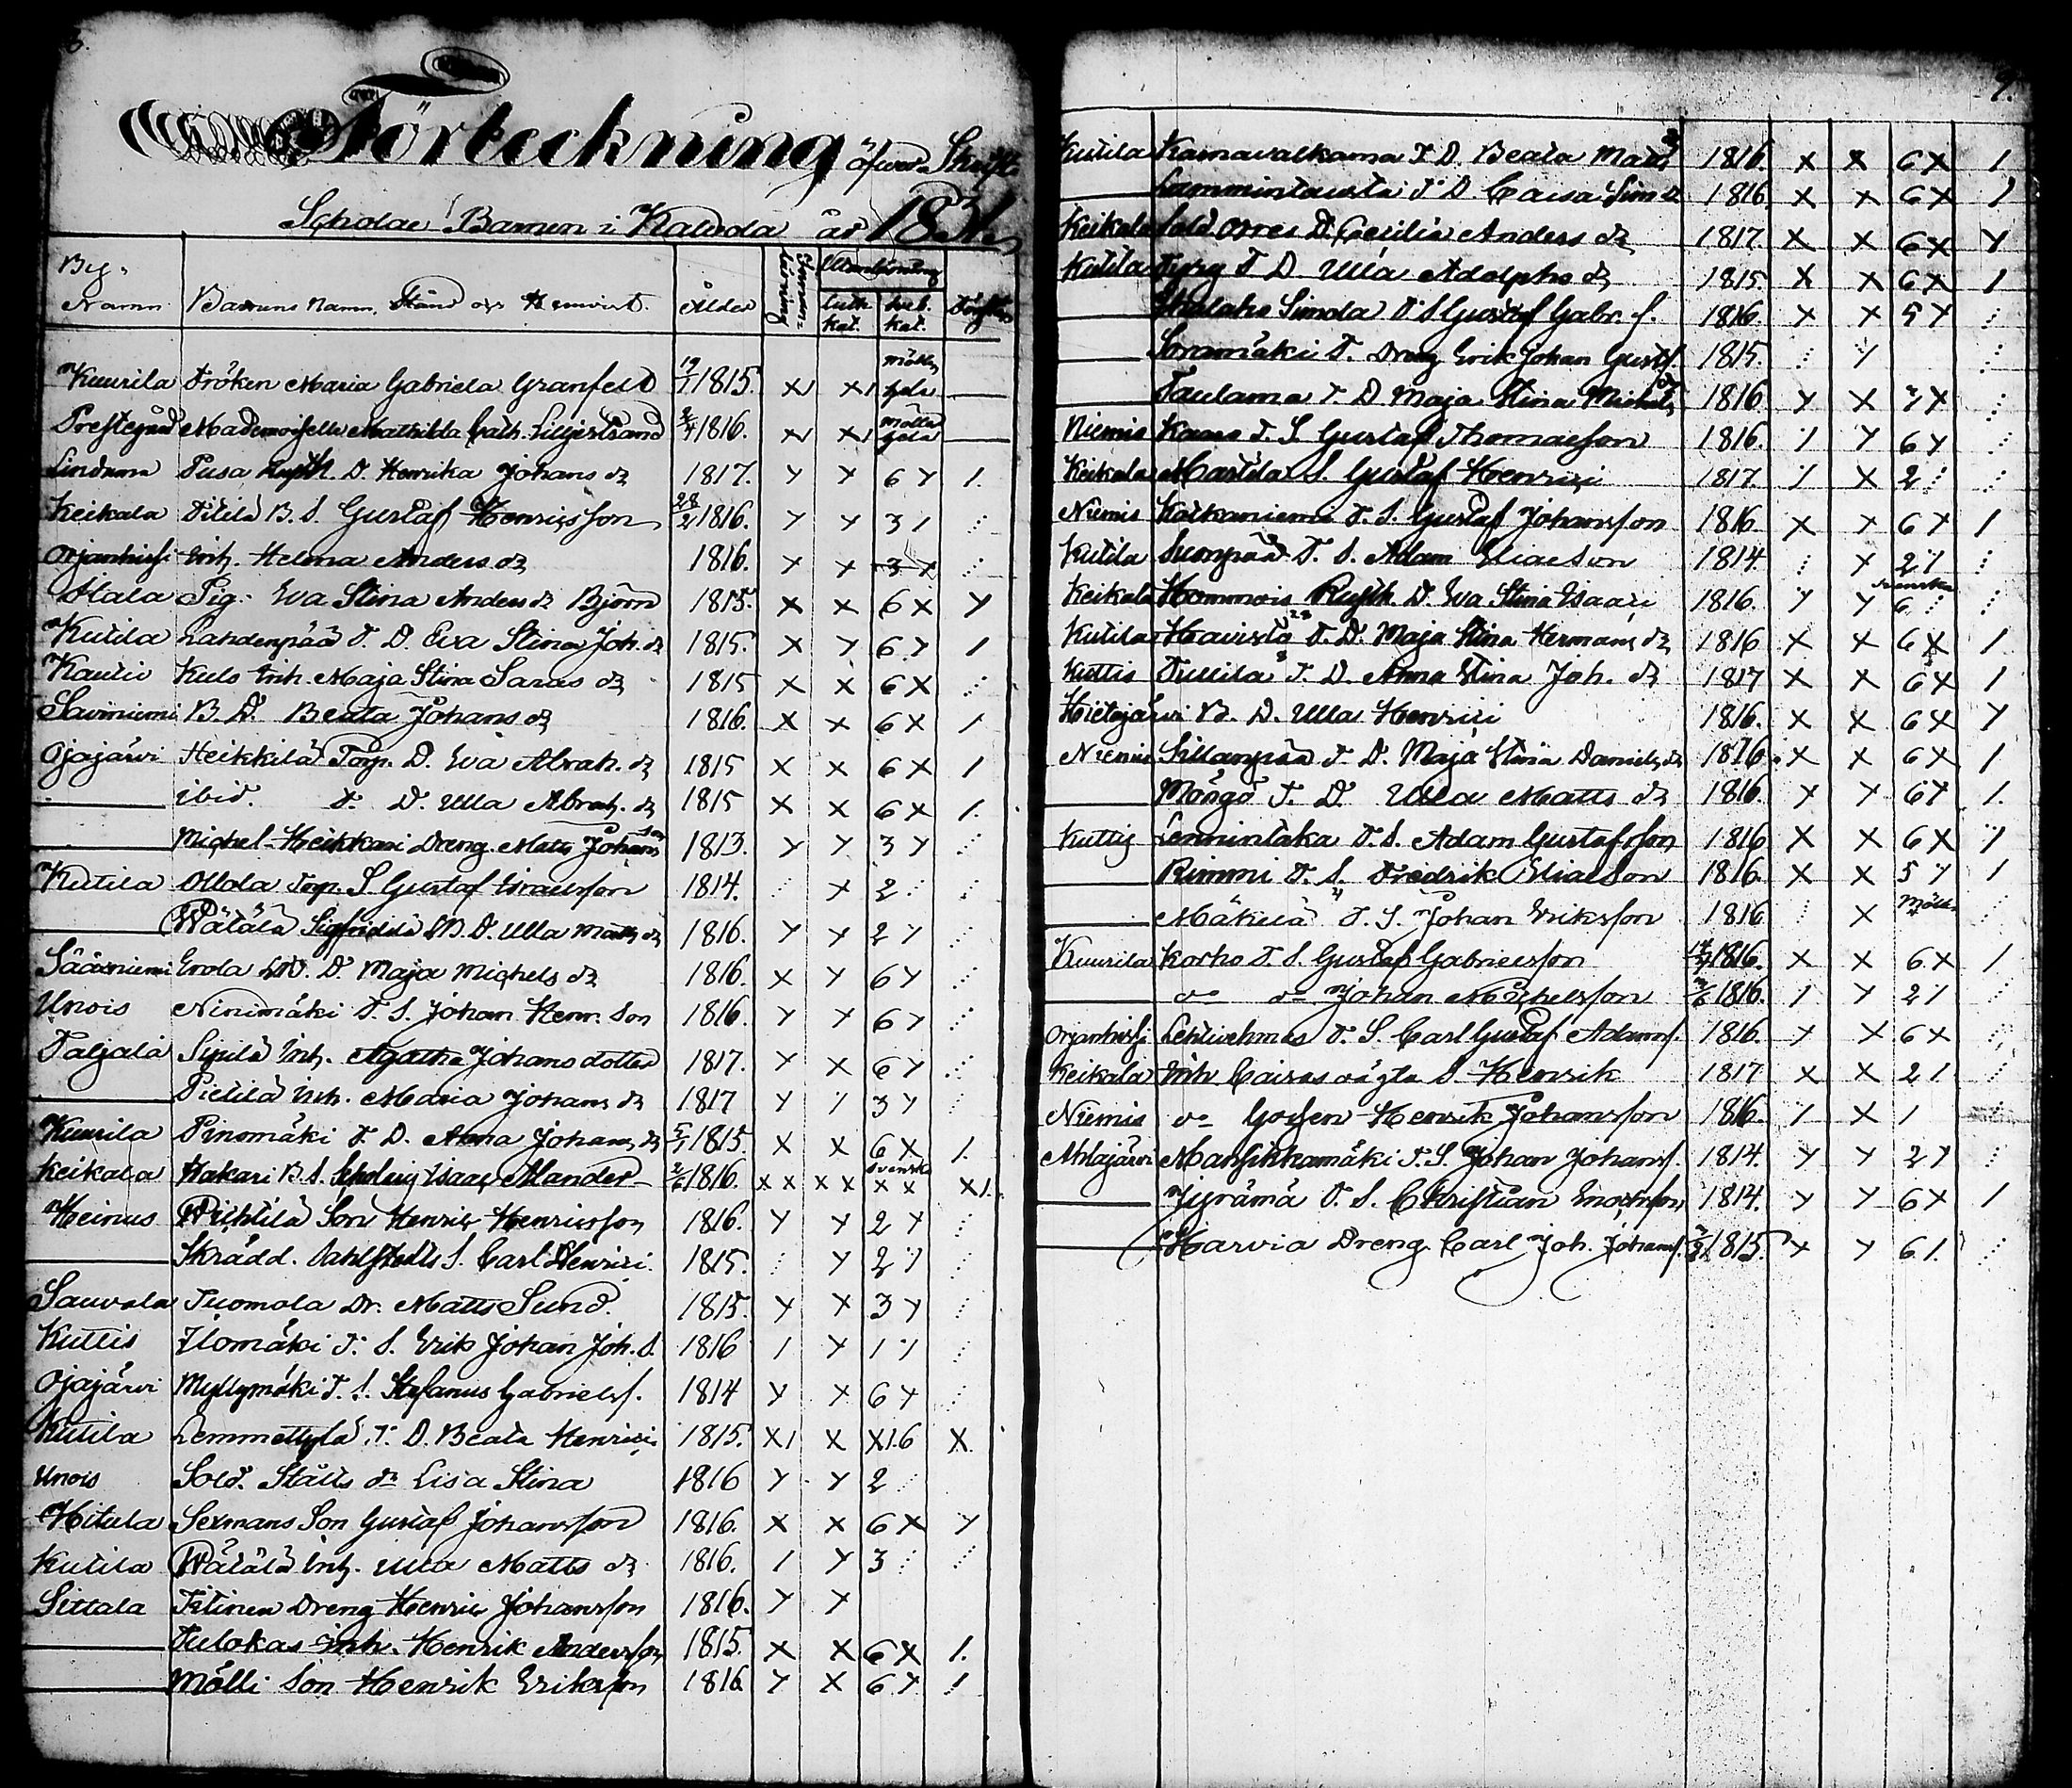 Förteckning öfwer Skrift-
Scholae Barnen i Kalvola år 1831
By-
Namn Barnens Namn, Stånd och Hemvist. Ålder
Luth. kat. Sveb. kat.
Kuurila Fröken Maria Gabriela Granfelt 19/7 1815.
Prestegård Mademoiselle Mathilda Cath. Liljestrand 1816.
Pusa D. Henrika Johans dr 1817. 6 1.
Keikala Pitilä B. S. Gustaf Henricsson 28/2 1816. 3
Orjanhirsi Inh. Helena Anders dr 1816. 3
Ahlala Pig. Eva Stina Anders dr Björn 1815. 6 X
Kutila Lahdenpää T. D. Eva Stina Joh. dr 1815. 6 1
Kulo Inh. Maja Stina Saras dr 1815 X X 6 X
Saviniemi B. D. Beata Johans dr 1816. X X 6 X 1
Ojajärvi Heikkilä Torp. D. Eva Abrah. dr 1815 X X 6 X 1
ibid. T. D. Ulla Abrah. dr 1815 X X 6 X 1.
Michel-Heikkari Dreng Matts Johansson 1813. 3
Kutila Ollola Torp. S. Gustaf Israelsson 1814. 2
Wätälä Sigfridilä B. D. Ulla Matts dr 1816. 2
Sääxniemi Erola D. Maja Michels dr 1816. 6
Unois Ninimäki T. S. Johan Henr. Son 1816. 6
Taljala Sipilä Inh. Agatha Johans dotter 1817. 6
Pietilä Inh. Maria Johans dr 1817 3
Kuurila Pinomäki T. D. Anna Johans dr 5/7 1815. X X 6 X 1.
Keikala Hakari B. S. Isaac Alander 2/6 1816. X X X X Svenska X X X 1.
Heinus Wichtilä Son Henric Henricsson 1816. 2
Skrädd. Dahlstedts S. Carl Henrici 1815. 2
Sauvala Tuomola Dr. Matts Lund. 1815. 3
Kuttis Ilomäki T. S. Erik Johan Joh. S. 1816 1
Ojajärvi Myllymäki T. S. Stefanus Gabrielss. 1814 6
Kutila Lemmettylä T. D. Beata Henrici 1815. X 1 X X 1 6 X
Unois Sold. Ståls dr Lisa Stina 1816 2
Hitula Sexmans Son Gustaf Johansson 1816. X X 6 X
Kutila Wätälä Inh. Ulla Matts dr 1816. 1 3
Sittala Titinen Dreng Henric Johansson 1816.
Tulokas Inh. Henrik Andersson 1815. X X 6 X 1.
Mölli Son Henrik Eriksson 1816 X 6 1
9.
Kutila Karnavalkama T. D. Beata Matts dr 1816. X X 6 X 1
Lammintausta T. D. Caisa Sim dr 1816. X X 6 X 1
Keikala Sold. Orres D. Cecilia Anders dr 1817 X X 6 X
Kutila Tyry T. D. Ulla Adolphs dr 1815. X X 6 X 1
Simola T. S. Gustaf Gabr. s. 1816. X 5
Sorramäki T. Dreng Erik Johan Gustfs. 1815.
Taulama T. D. Maja Stina Michels dr 1816 X
Niemis Kaars T. S. Gustaf Thomasson 1816. 6
Keikala Marttila S. Gustaf Henrici 1817. X 2
Niemis Kotkaniemi T. S. Gustaf Johansson 1816 X 6 1
Kutila Suonpää T. S. Adam Eliasson 1814. X 2
Keikala Hommois Rusth. D. Eva Stina Isaaci 1816. Svenska 6
Kutila Havisto T. D. Maja Stina Hermans dr 1816 X X 6 X 1
Kuttis Tullila T. D. Anna Stina Joh. dr 1817 X X 6 X 1
Hietajärvi B. D. Ulla Henrici 1816. X X 6 X
Niemis Sillanpää T. D. Maja Stina Daniels dr 1816. X X 6 X 1
Mångo T. D. Ulla Matts dr 1816. 6 1.
Kuttis Lennintaka T. S. Adam Gustafsson 1816 X X 6 X 1
Rimmi T. S. Fredrik Eliasson 1816. X X 5 1
Mäkilä T. S. Johan Eriksson 1816 X
Kuurila Korho T. S. Gustaf Gabrielsson 1816. X X 6 X 1
do do Johan Michelsson 1816. 1 2
Orjanhirsi Lehtivehmas T. S. Carl Gustaf Adams s. 1816. X 6 X
Keikala Inh. Caisas oägta S. Henrik 1817 X X 2
Niemis do Henrik Johansson 1816. X 1
Ahlajärvi Mansikkamäki T. S. Johan Johans s. 1814. 2
Jyrämä T. S. Christian Enochsson 1814. 6 X 1
Harvia Dreng Carl Joh. Johans s. 1815. 6 1.